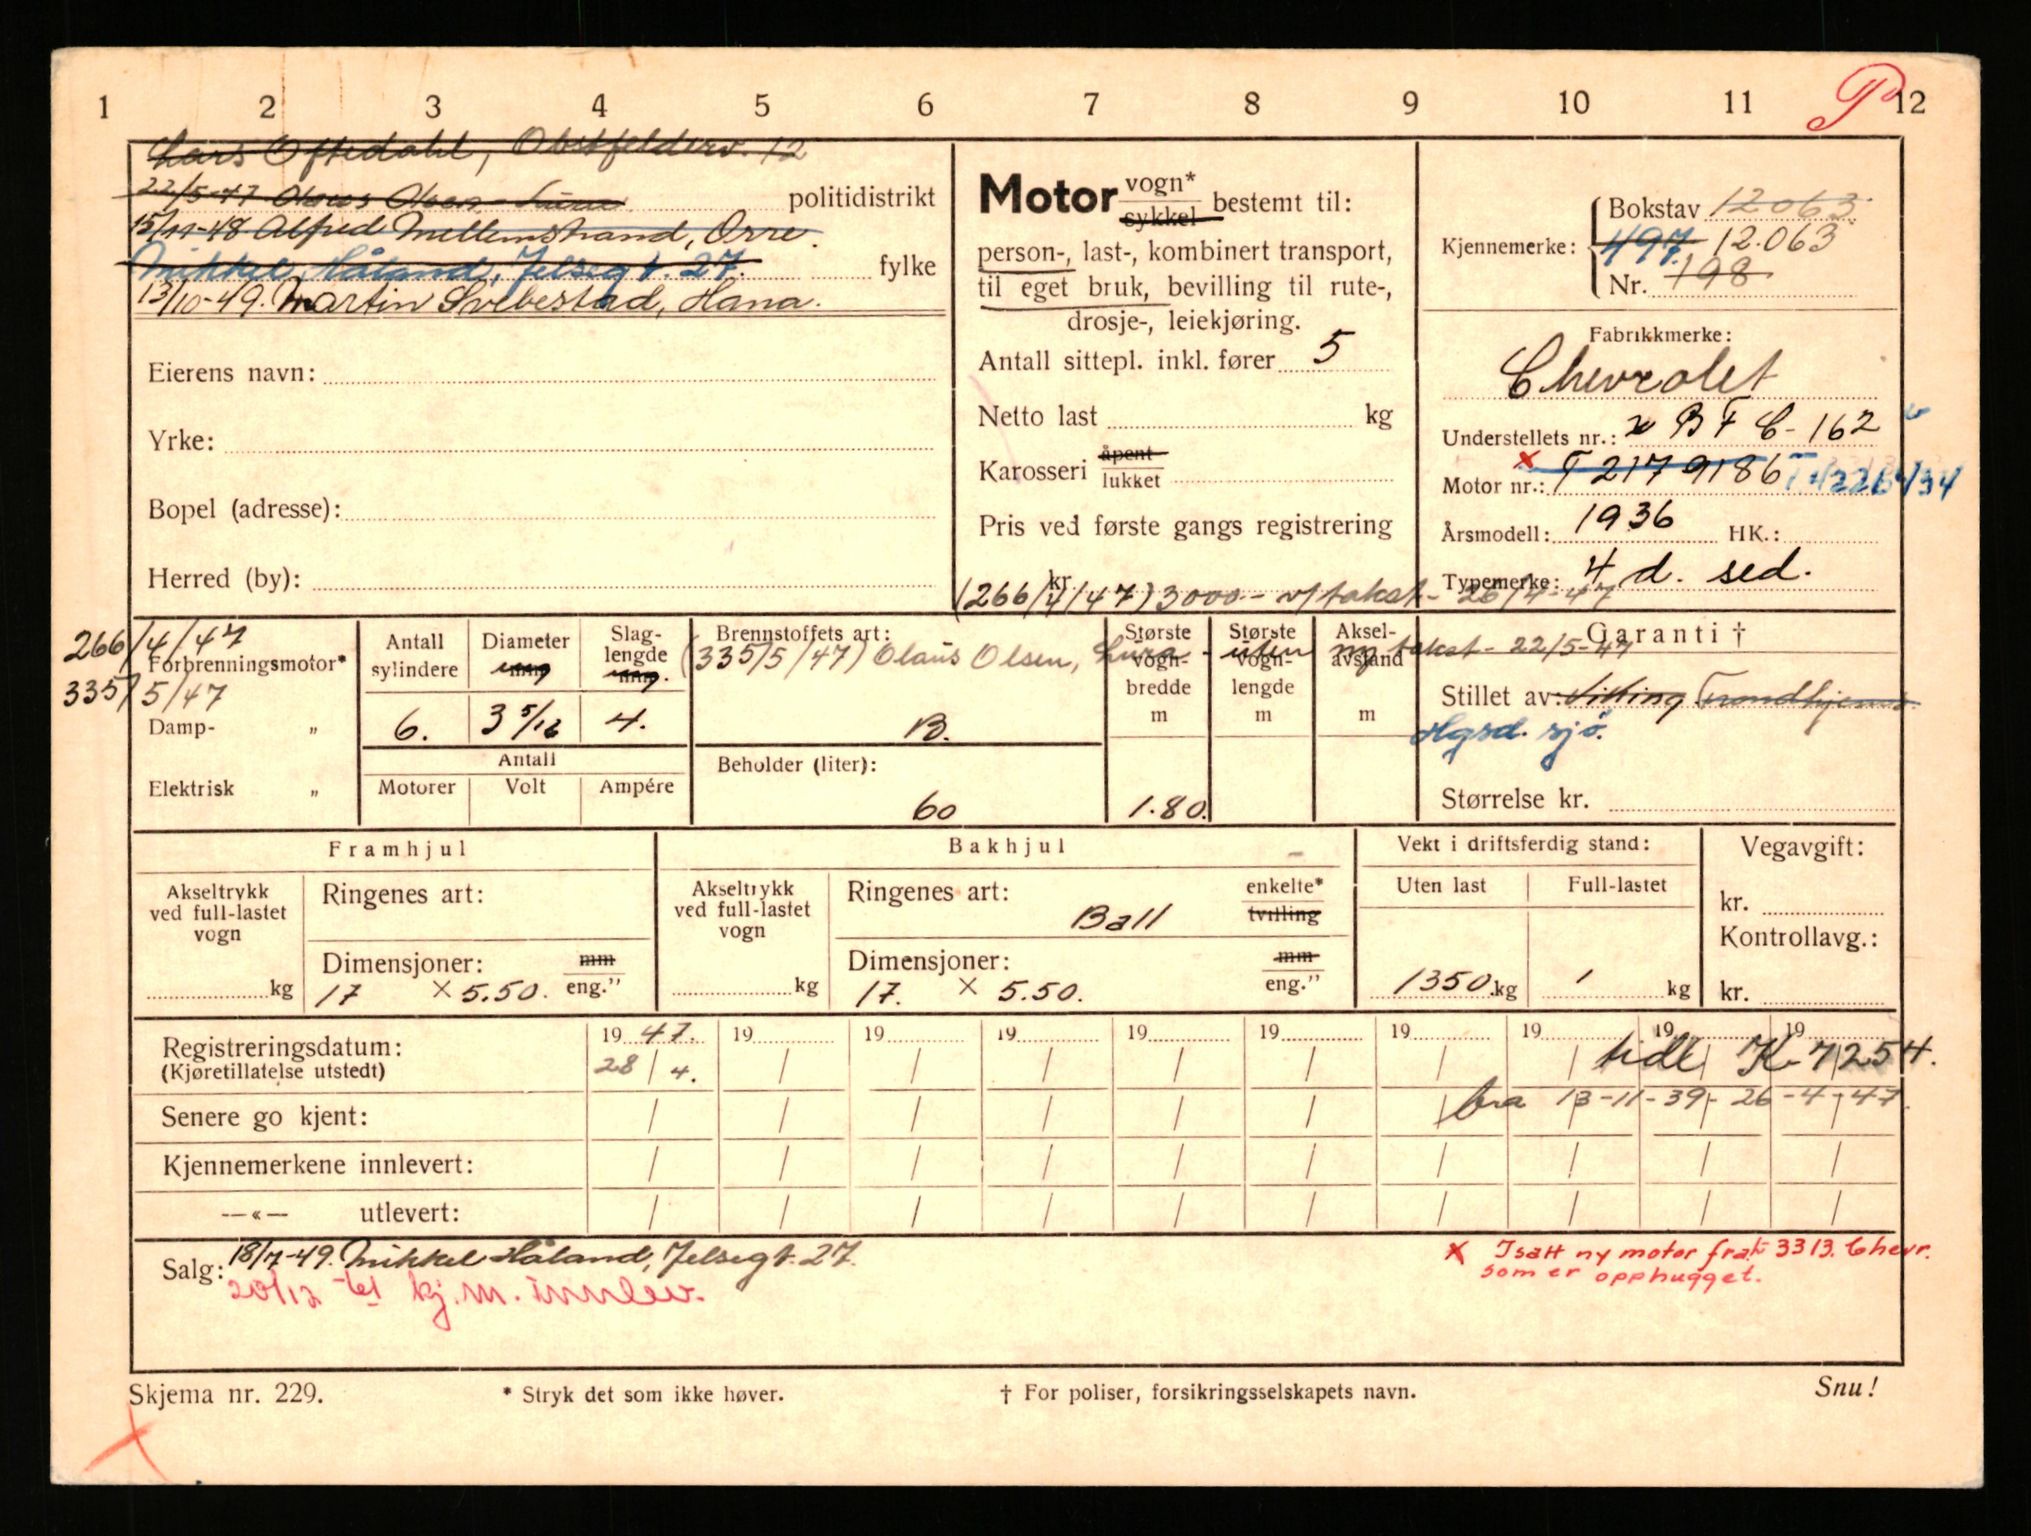 1 2 3 4 5 6 7 8 9 10 11 12
Lars Oftedahl, Obstfelderv. 12
22/5-47 Olaus Olsen Lura politidistrikt
15/11-48 Alfred Mellemstrand, Orre.
Mikkel Håland, Jelsegt. 27. fylke
13/10-49. Martin Svebestad, Hana.
Eierens navn:
Yrke:
Bopel (adresse):
Herred (by):
Motor vogn*
sykkel bestemt til:
person-, last-, kombinert transport,
til eget bruk, bevilling til rute-,
drosje-, leiekjøring.
Antall sittepl. inkl. fører 5
Netto last kg
Karosseri åpent
lukket
Pris ved første gangs registrering
kr.
(266/4/47) 3000 - v/takst - 26/4-47
Bokstav 12063
Kjennemerke: 497 12.063
Nr. 198
Fabrikkmerke:
Chevrolet
Understellets nr.: x B F C - 162
x
Motor nr.: T 2179186
Årsmodell: 1936 HK.:
Typemerke: 4 d. sed.
266/4/47
Forbrenningsmotor*
335/5/47
Damp- „
Elektrisk „
Antall sylindere
6.
Diameter mm
3 5/16
Slaglengde mm.
4.
Antall
Motorer Volt Ampére
Brennstoffets art:
(335/5/47) Olaus Olsen, Lura - uten ny takst - 22/5-47
B.
Beholder (liter):
60
Største vogn-bredde m
1.80.
Største vogn-lengde m
Aksel-avstand m
Garanti †
Stillet av: Viking Trondhjems
Hgsd. sjø.
Størrelse kr.
Framhjul
Akseltrykk ved full-lastet vogn
kg
Ringenes art:
Dimensjoner: mm
17 × 5.50. eng."
Bakhjul
Akseltrykk ved full-lastet vogn
kg
Ringenes art: enkelte*
Ball tvilling
Dimensjoner: mm
17. × 5.50. eng."
Vekt i driftsferdig stand:
Uten last Full-lastet
1350 kg kg
Vegavgift:
kr.
Kontrollavg.:
kr.
Registreringsdatum: 19 47. 19 19 19 19 19 19 19 19 19
(Kjøretillatelse utstedt) 28/4. tidl K-7254.
bra 13-11-39 - 26-4-47.
Senere go kjent:
Kjennemerkene innlevert:
—«— utlevert:
Salg: 18/7-49. Mikkel Håland, Jelsegt. 27.
20/12 kj.m. innlev.
x Isatt ny motor fra 3313. Chevr.
som er opphugget.
Skjema nr. 229. * Stryk det som ikke høver. † For poliser, forsikringsselskapets navn. Snu!